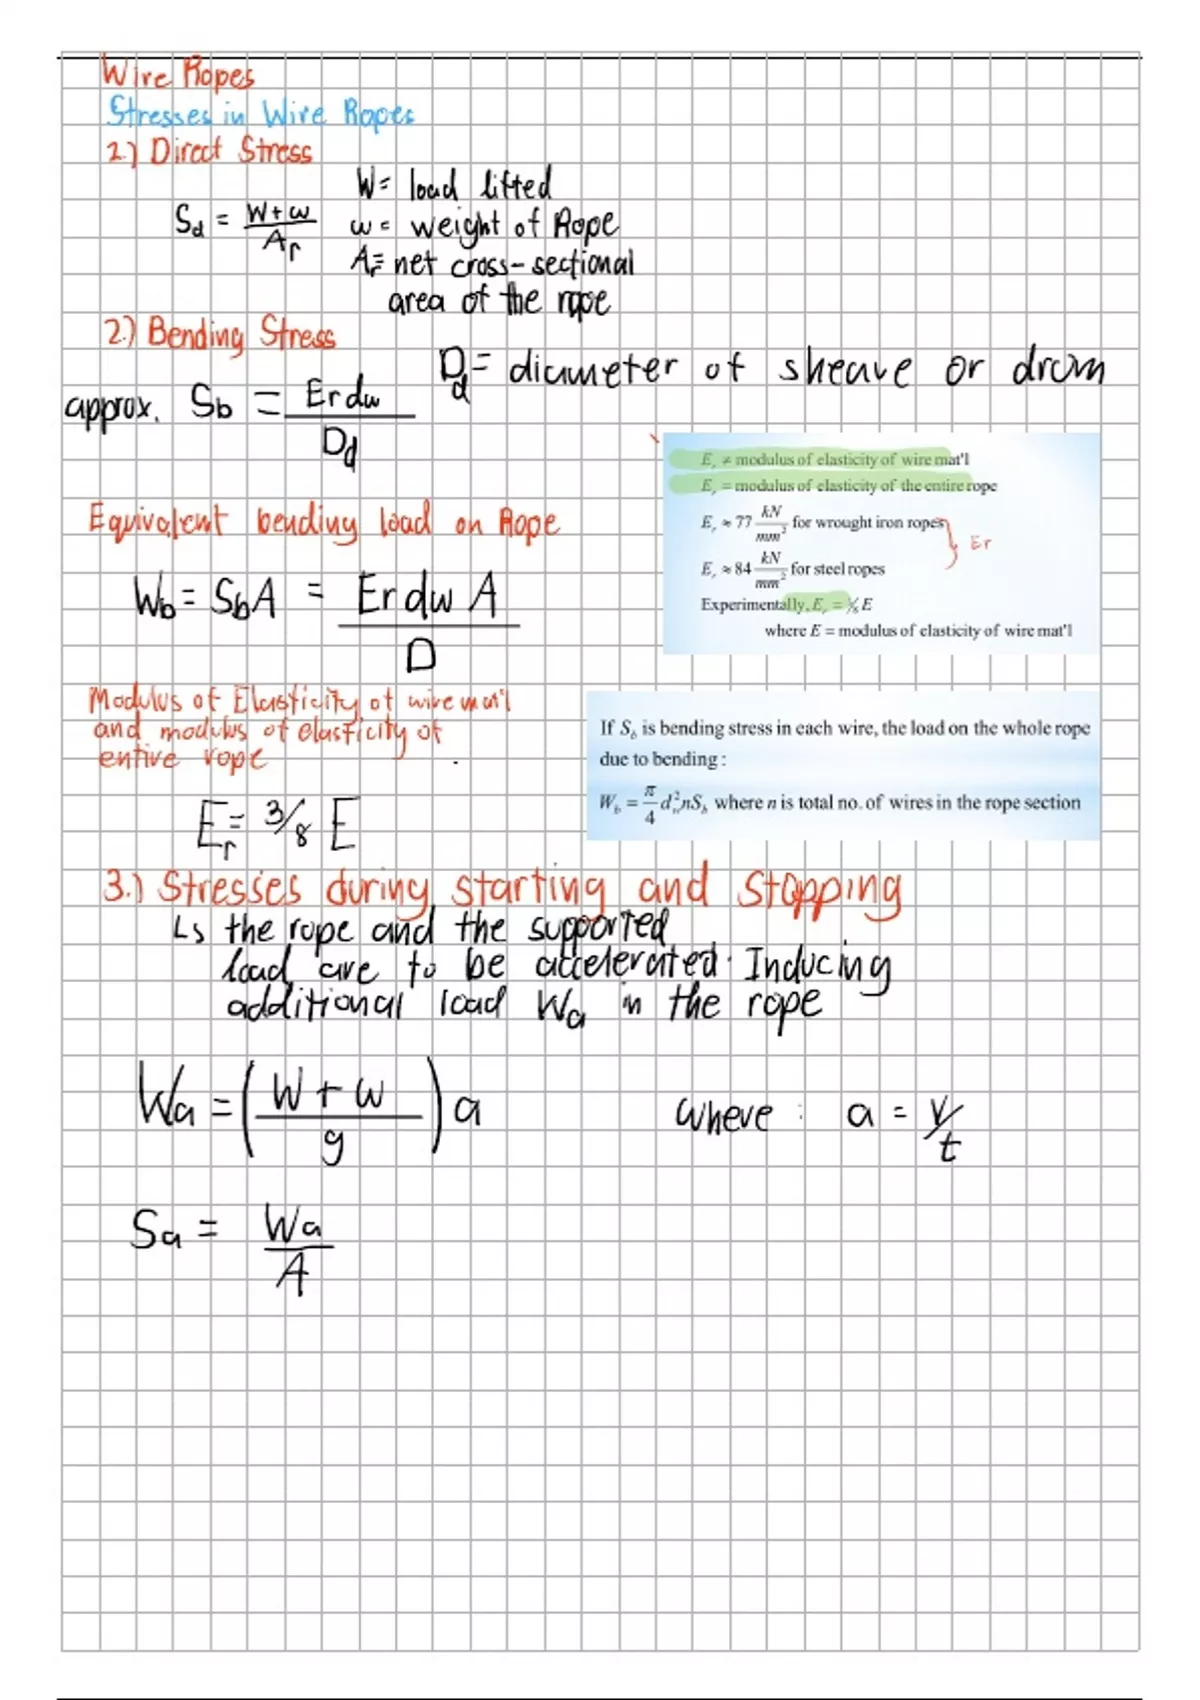 Wire Ropes
Stresses in Wire Ropes
1.) Direct Stress
S_d = (W+w)/A_r
W = load lifted
w = weight of Rope
A_r = net cross-sectional
area of the rope
2.) Bending Stress
D_d = diameter of sheave or drum
approx. S_b = E_r d_w / D_d
E_r ≠ modulus of elasticity of wire mat'l
E_r = modulus of elasticity of the entire rope
E_r ≈ 77 kN/mm² for wrought iron ropes
E_r ≈ 84 kN/mm² for steel ropes
} Er
Experimentally, E_r = ⅜ E
where E = modulus of elasticity of wire mat'l
Equivalent bending load on Rope
W_b = S_b A = E_r d_w A / D
Modulus of Elasticity of wire mat'l
and modulus of elasticity of
entire rope
E_r = 3/8 E
If S_b is bending stress in each wire, the load on the whole rope
due to bending :
W_b = π/4 d_w² n S_b where n is total no. of wires in the rope section
3.) Stresses during starting and stopping
↳ the rope and the supported
load are to be accelerated. Inducing
additional load Wa in the rope
Wa = ((W + w)/g) a
where : a = v/t
Sa = Wa/A